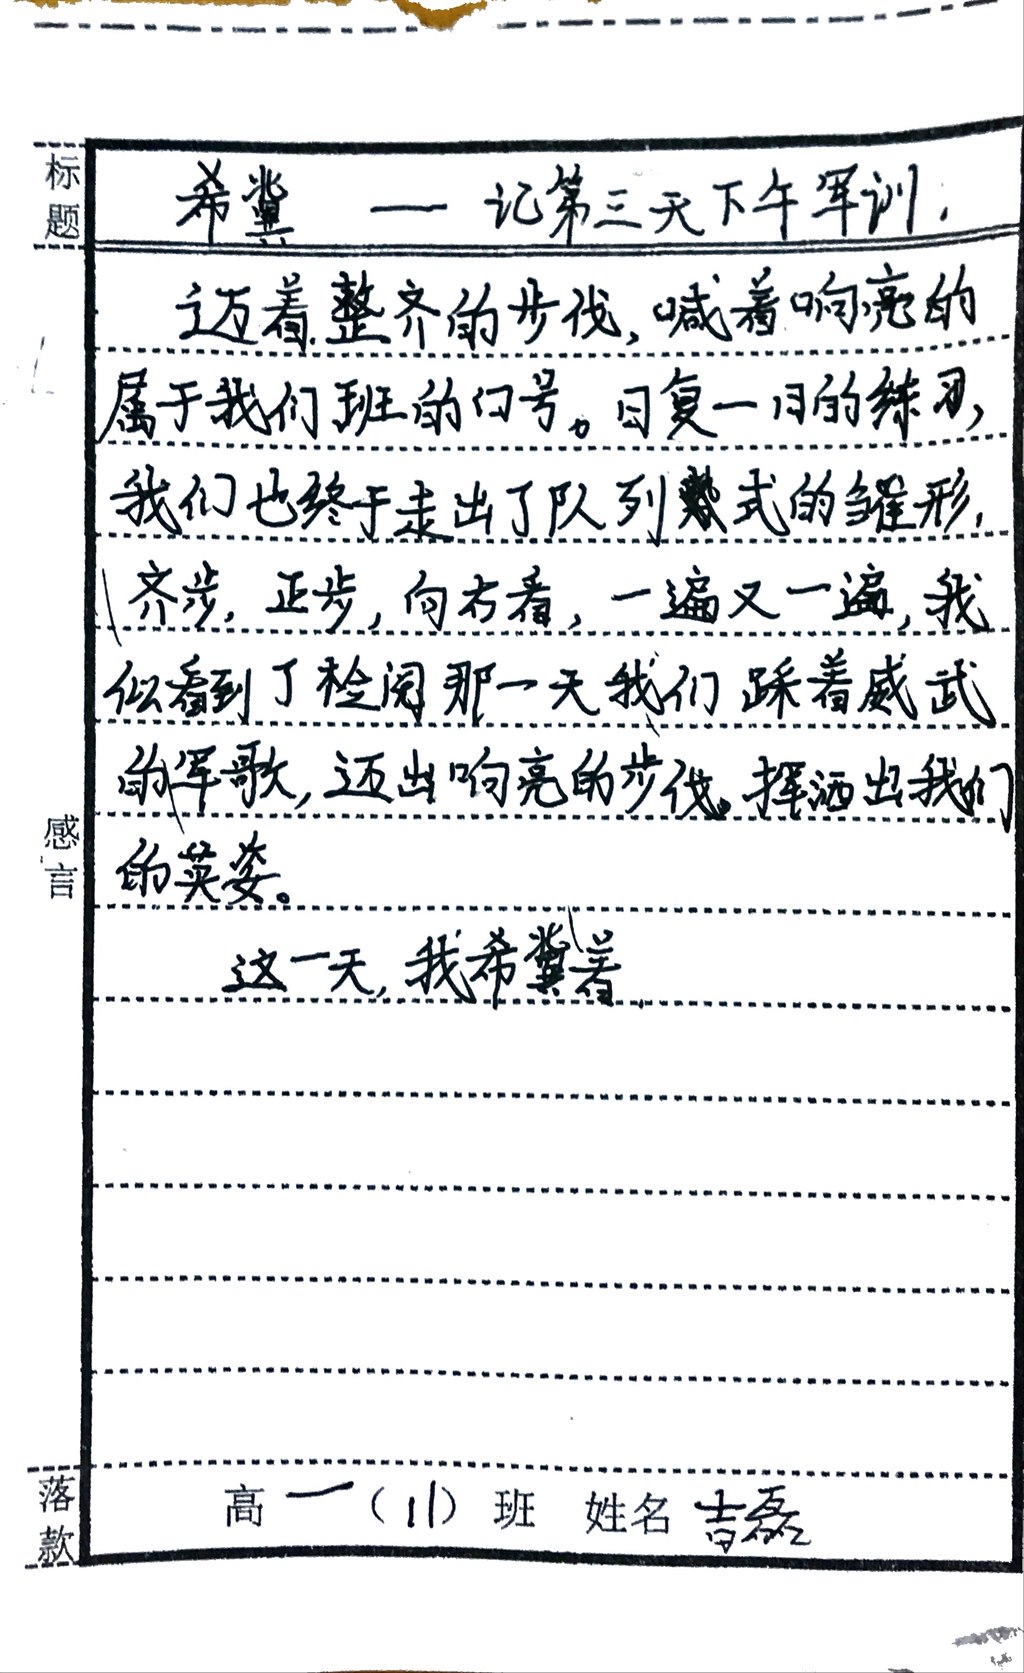 标题
希冀 — 记第三天下午军训.
迈着整齐的步伐,喊着响亮的
属于我们班的口号。日复一日的练习,
我们也终于走出了队列式的雏形,
齐步,正步,向右看,一遍又一遍,我
似看到了检阅那一天我们踩着威武
的军歌,迈出响亮的步伐。挥洒出我们
的英姿。
感言
这一天,我希冀着
落款
高一(11)班 姓名 吉磊